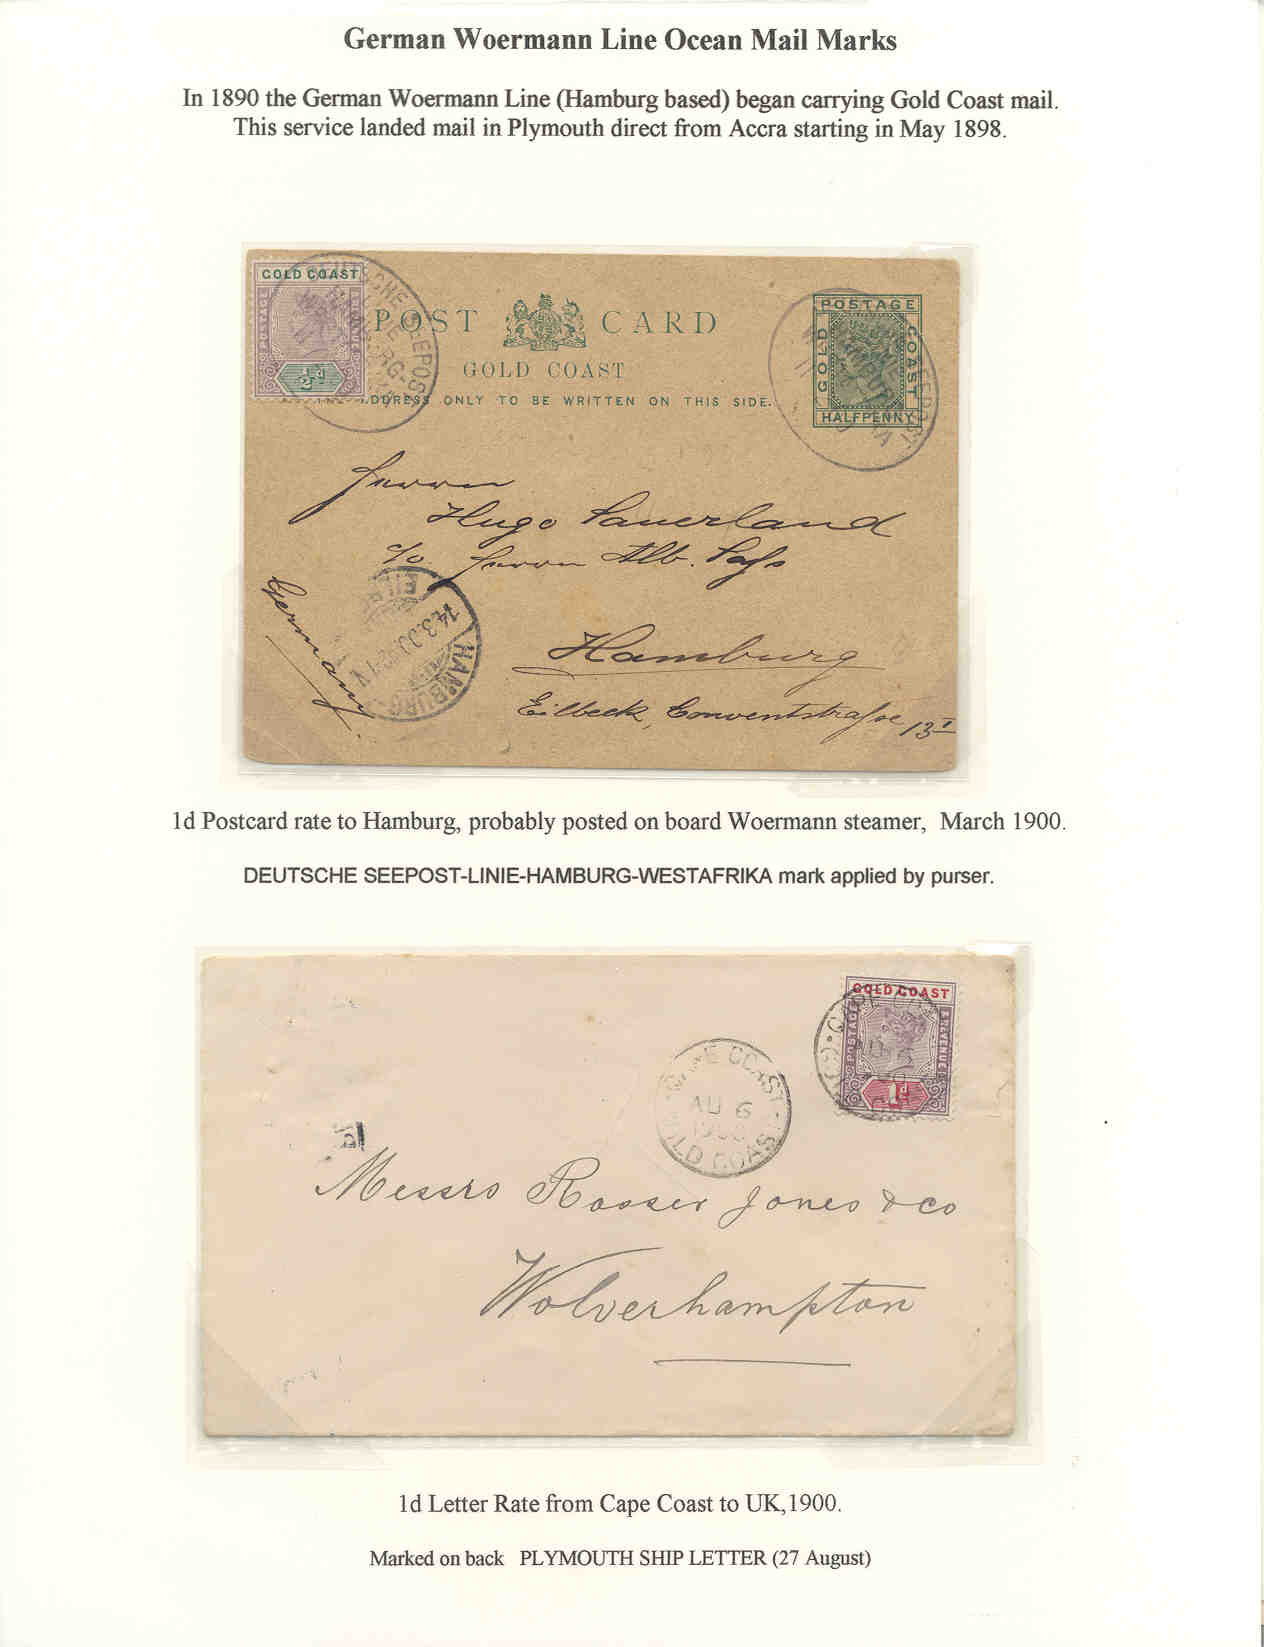 German Woermann Line Ocean Mail Marks
In 1890 the German Woermann Line (Hamburg based) began carrying Gold Coast mail.
This service landed mail in Plymouth direct from Accra starting in May 1898.
GOLD COAST
POSTAGE REVENUE
½d
DEUTSCHE SEEPOST
POST CARD
GOLD COAST
ADDRESS ONLY TO BE WRITTEN ON THIS SIDE.
POSTAGE
GOLD COAST
HALFPENNY
Herrn
Hugo Sauerland
c/o. Herrn Alb. Sass
Germany.
14.3.00
HAMBURG-
Hamburg
Eilbeck, Conventstrasse 13 I
1d Postcard rate to Hamburg, probably posted on board Woermann steamer, March 1900.
DEUTSCHE SEEPOST-LINIE-HAMBURG-WESTAFRIKA mark applied by purser.
GOLD COAST
POSTAGE & REVENUE
1d
CAPE COAST
AU 6
1900
GOLD COAST
Messrs Rosser Jones & co
Wolverhampton
1d Letter Rate from Cape Coast to UK,1900.
Marked on back PLYMOUTH SHIP LETTER (27 August)